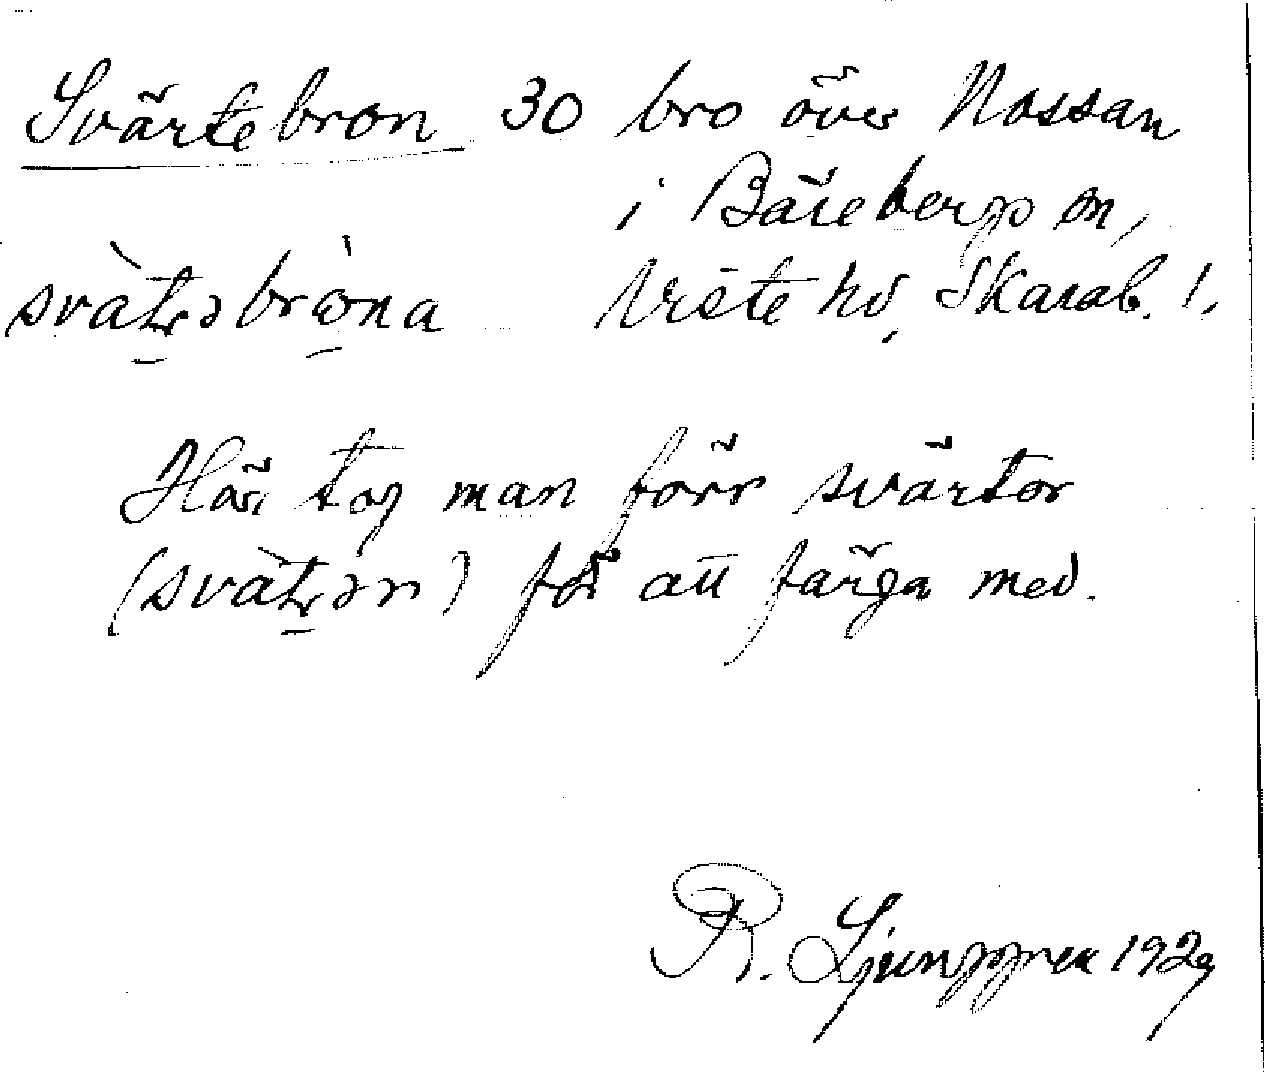 Svärtebron 30 bro över Nossan
i Bärebergs sn,
Viste hd, Skarab. l.
Här tog man förr svärtor
för att färga med.
R. Ljunggren 1929